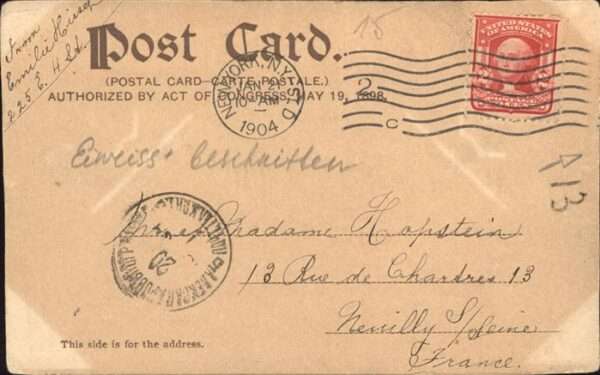 From
Emilie
225 E. 4 St.
15
Post Card.
(POSTAL CARD-CARTE POSTALE.)
AUTHORIZED BY ACT OF CONGRESS, MAY 19, 1898.
NEW YORK, N.Y. STA. D
JAN 21
10 AM
1904
2
C
UNITED STATES
OF AMERICA
Eiweiss beschnitten
13
Madame Hopstein
13 Rue de Chartres 13
Neuilly S/Seine
France.
This side is for the address.